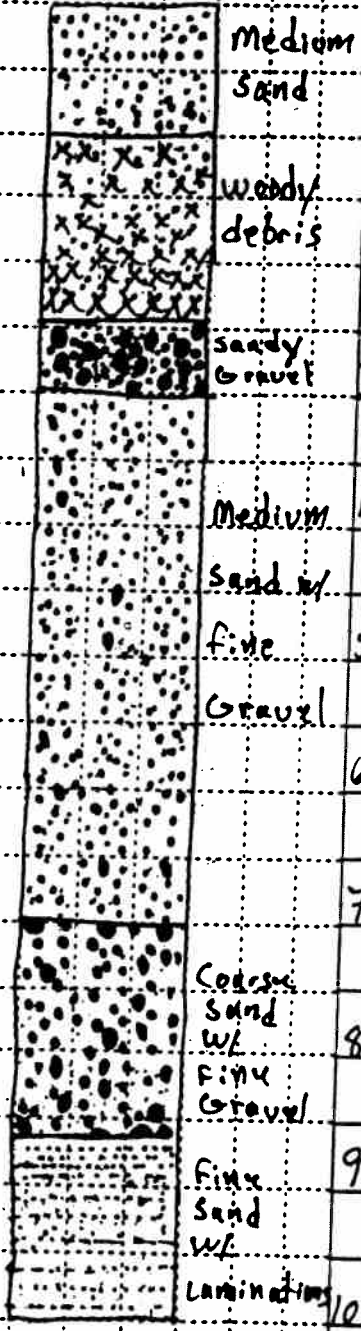 Medium
Sand
Woody
debris
Sandy
Gravel
Medium
Sand w/
fine
Gravel
6
7
Coarse
Sand
w/
8
Fine
Gravel
9
Fine
Sand
w/
Laminations
10